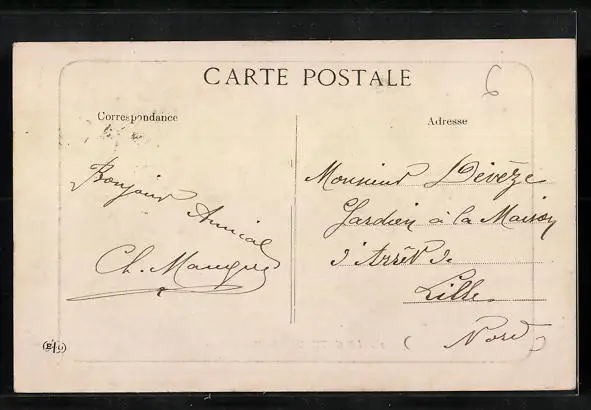 CARTE POSTALE
Correspondance
Bonjour Amical
Ch.
Adresse
Monsieur Devèze
Gardien à la Maison
d'Arrêt de
Lille
Nord
6